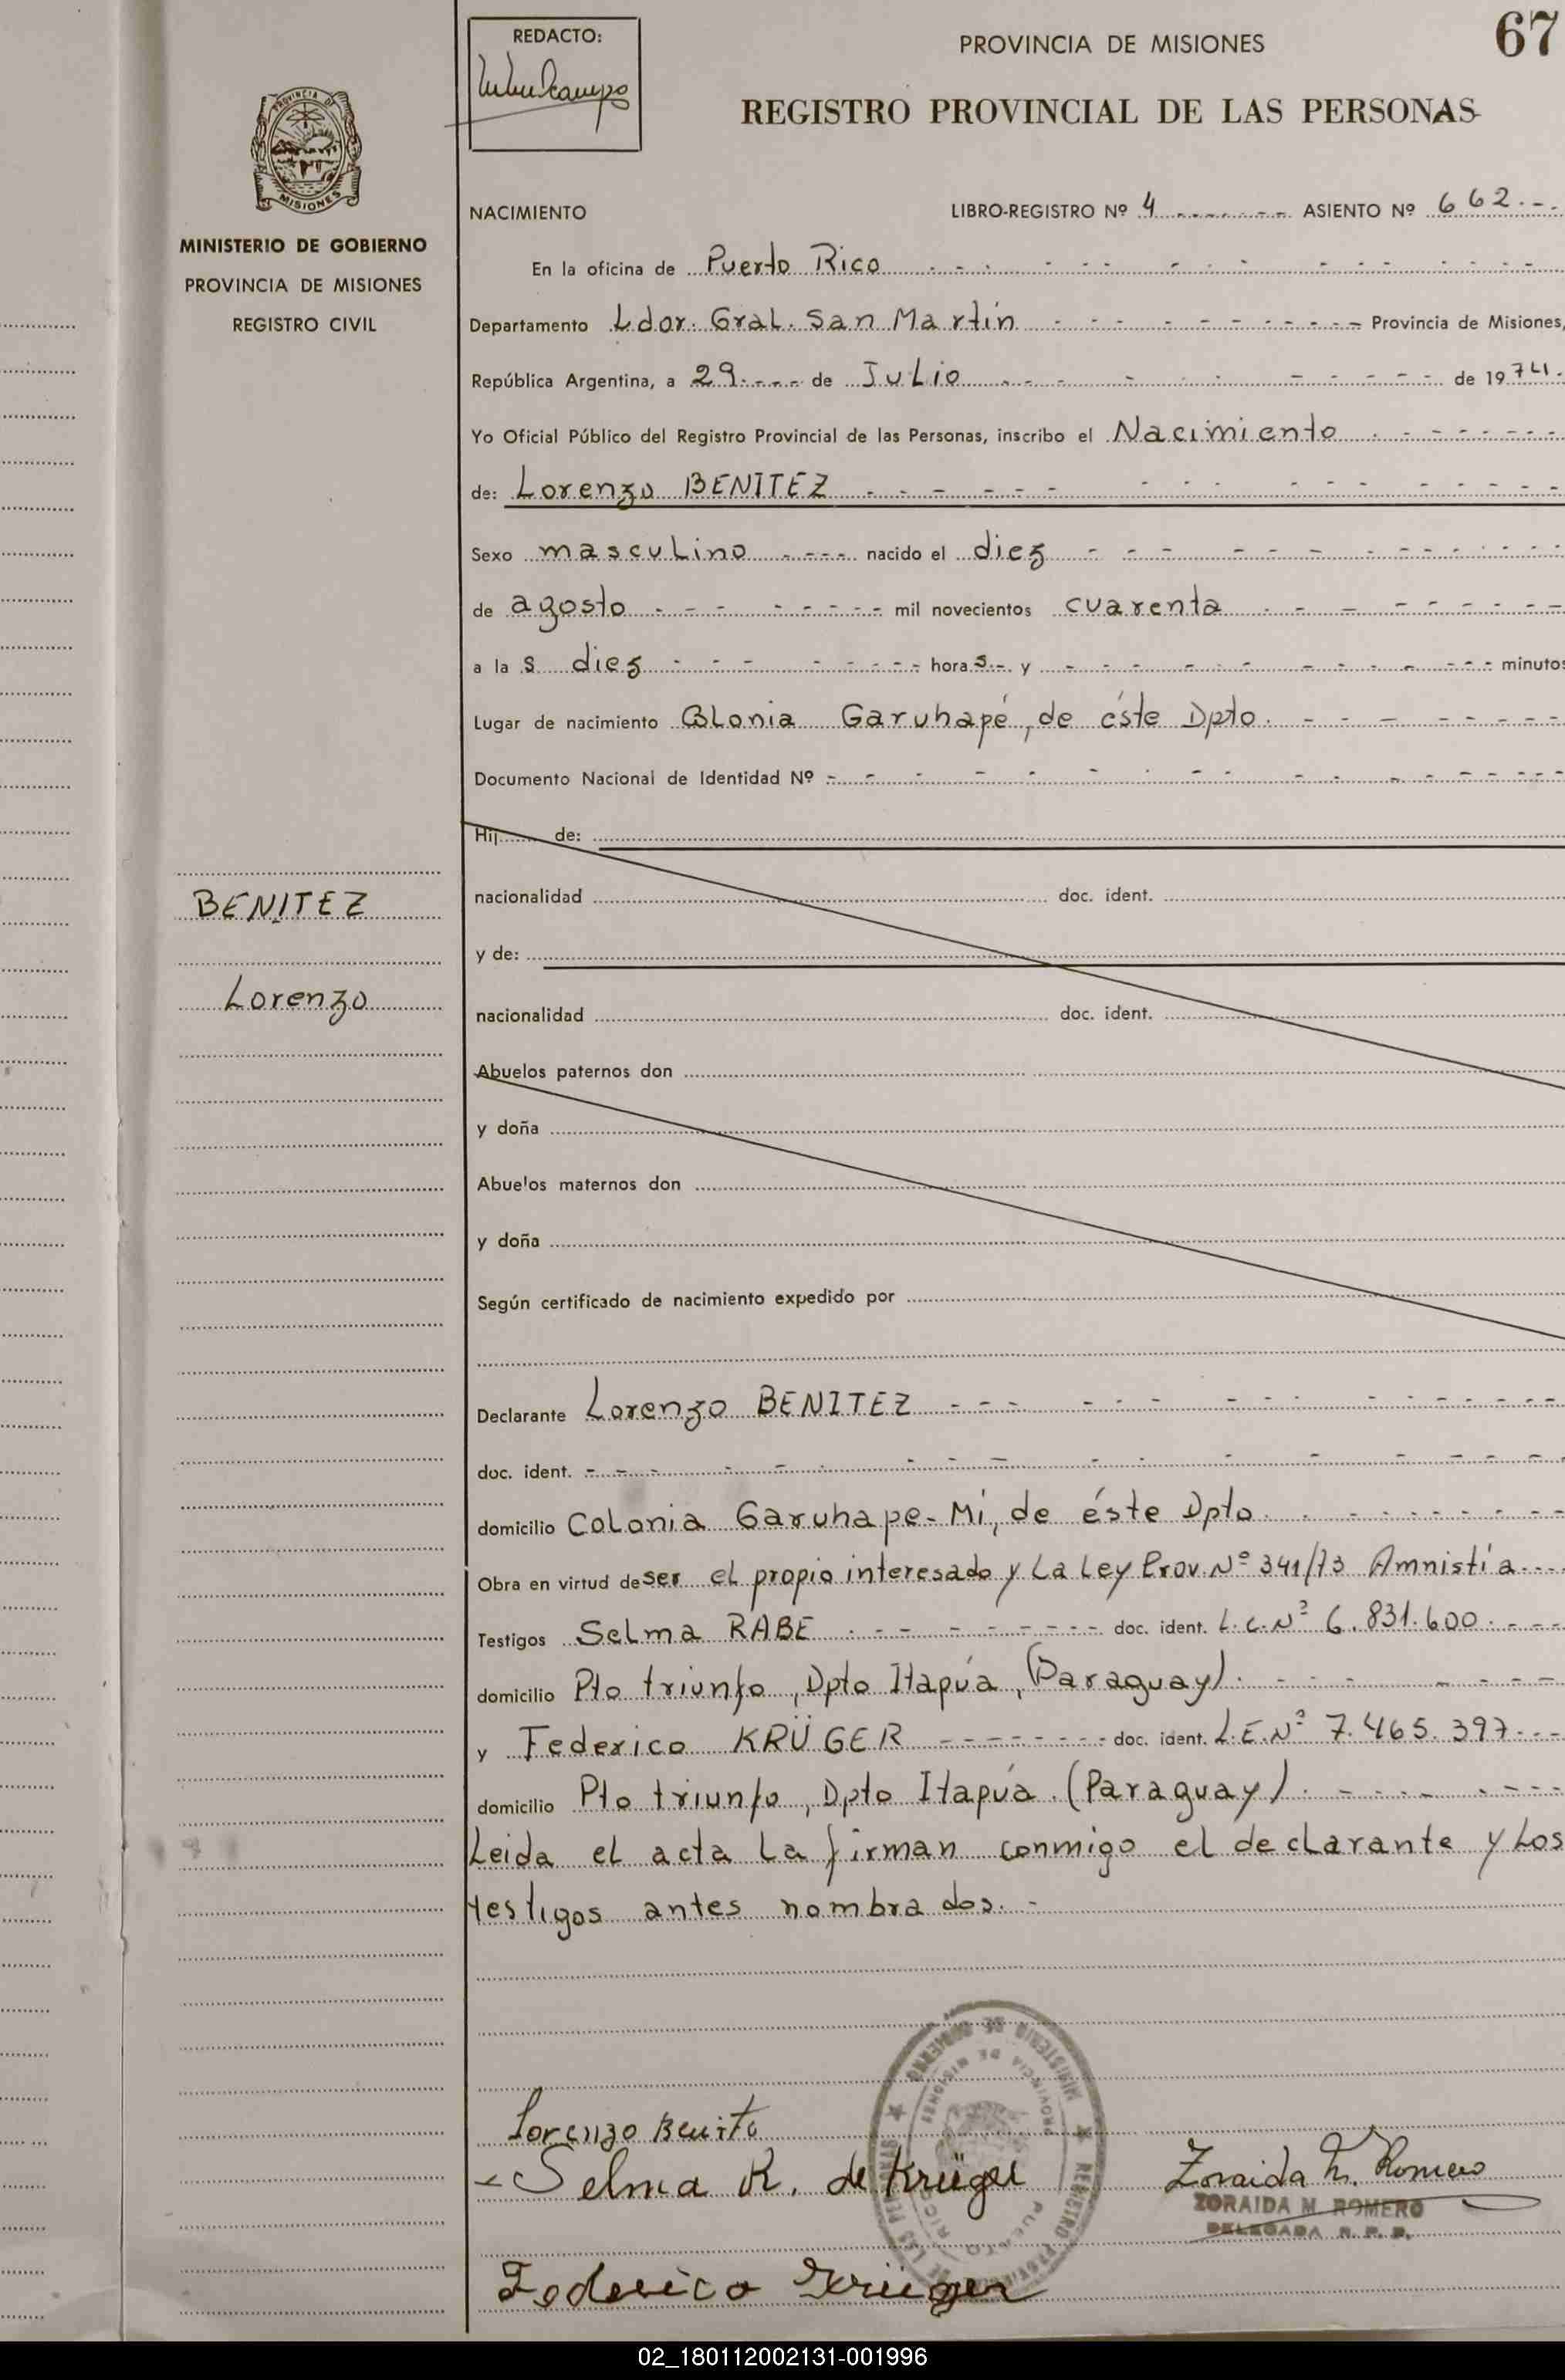 67
REDACTO:
PROVINCIA DE MISIONES
REGISTRO PROVINCIAL DE LAS PERSONAS
PROVINCIA DE
MISIONES
MINISTERIO DE GOBIERNO
PROVINCIA DE MISIONES
REGISTRO CIVIL
BENITEZ
Lorenzo
NACIMIENTO LIBRO-REGISTRO Nº 4 ASIENTO Nº 662
En la oficina de Puerto Rico
Departamento Ldor. Gral. San Martín Provincia de Misiones,
República Argentina, a 29 de Julio de 1974.
Yo Oficial Público del Registro Provincial de las Personas, inscribo el Nacimiento
de: Lorenzo BENITEZ
Sexo masculino nacido el diez
de agosto mil novecientos cuarenta
a las diez horas y minutos
Lugar de nacimiento Colonia Garuhapé, de éste Dpto.
Documento Nacional de Identidad Nº
Hij de:
nacionalidad doc. ident.
y de:
nacionalidad doc. ident.
Abuelos paternos don
y doña
Abuelos maternos don
y doña
Según certificado de nacimiento expedido por
Declarante Lorenzo BENITEZ
doc. ident.
domicilio Colonia Garuhape-Mí, de éste Dpto
Obra en virtud de ser el propio interesado y La Ley Prov. Nº 341/73 Amnistía
Testigos Selma RABE doc. ident. L.C.Nº 6.831.600
domicilio Pto triunfo, Dpto Itapúa, (Paraguay).
y Federico KRÜGER doc. ident. L.E.Nº 7.465.397
domicilio Pto triunfo, Dpto Itapúa. (Paraguay).
Leida el acta la firman conmigo el declarante y los
testigos antes nombrados.-
MINISTERIO DE GOBIERNO
PROVINCIA DE MISIONES
REGISTRO PROVINCIAL DE LAS PERSONAS
PUERTO RICO
Lorenzo Benito
Selma R. de Krüger
Zoraida M. Romero
ZORAIDA M. ROMERO
DELEGADA R. P. P.
Federico Krüger
02_180112002131-001996